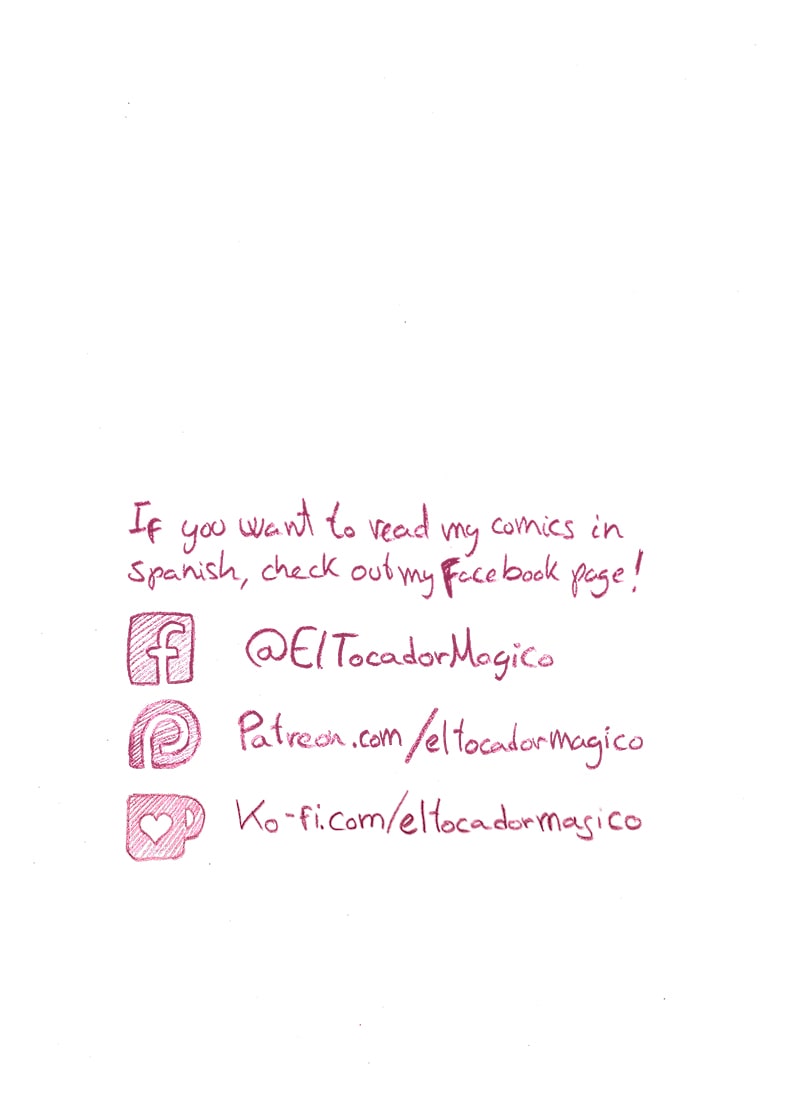 If you want to read my comics in
spanish, check out my Facebook page!
f @ElTocadorMagico
Patreon.com/eltocadormagico
Ko-fi.com/eltocadormagico